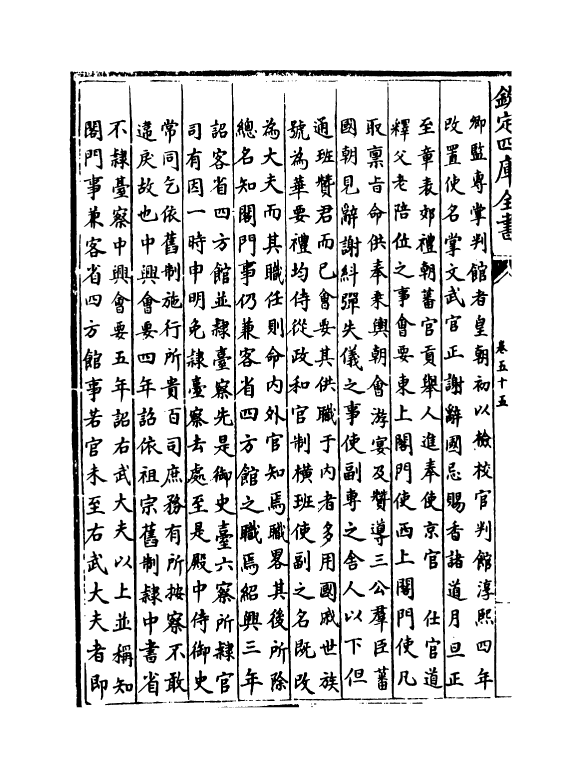 欽定四庫全書
卷五十五
卿監專掌判館者皇朝初以檢校官判館淳熙四年
改置使名掌文武官正謝辭國忌賜香諸道月旦正
至章表郊禮朝蕃官貢舉人進奉使京官　仕官道
釋父老陪位之事會要東上閤門使西上閤門使凡
取稟旨命供奉乘輿朝會游宴及贊導三公羣臣蕃
國朝見辭謝糾彈失儀之事使副專之舍人以下但
通班贊君而已會要其供職于内者多用國戚世族
號為華要禮均侍從政和官制横班使副之名既改
為大夫而其職任則命内外官知焉職畧其後所除
總名知閤門事仍兼客省四方館之職焉紹興三年
詔客省四方館並隸臺察先是御史臺六察所隸官
司有因一時申明免隸臺察去處至是殿中侍御史
常同乞依舊制施行所貴百司庶務有所按察不敢
違戾故也中興會要四年詔依祖宗舊制隸中書省
不隸臺察中興會要五年詔右武大夫以上並稱知
閤門事兼客省四方館事若官未至右武大夫者即